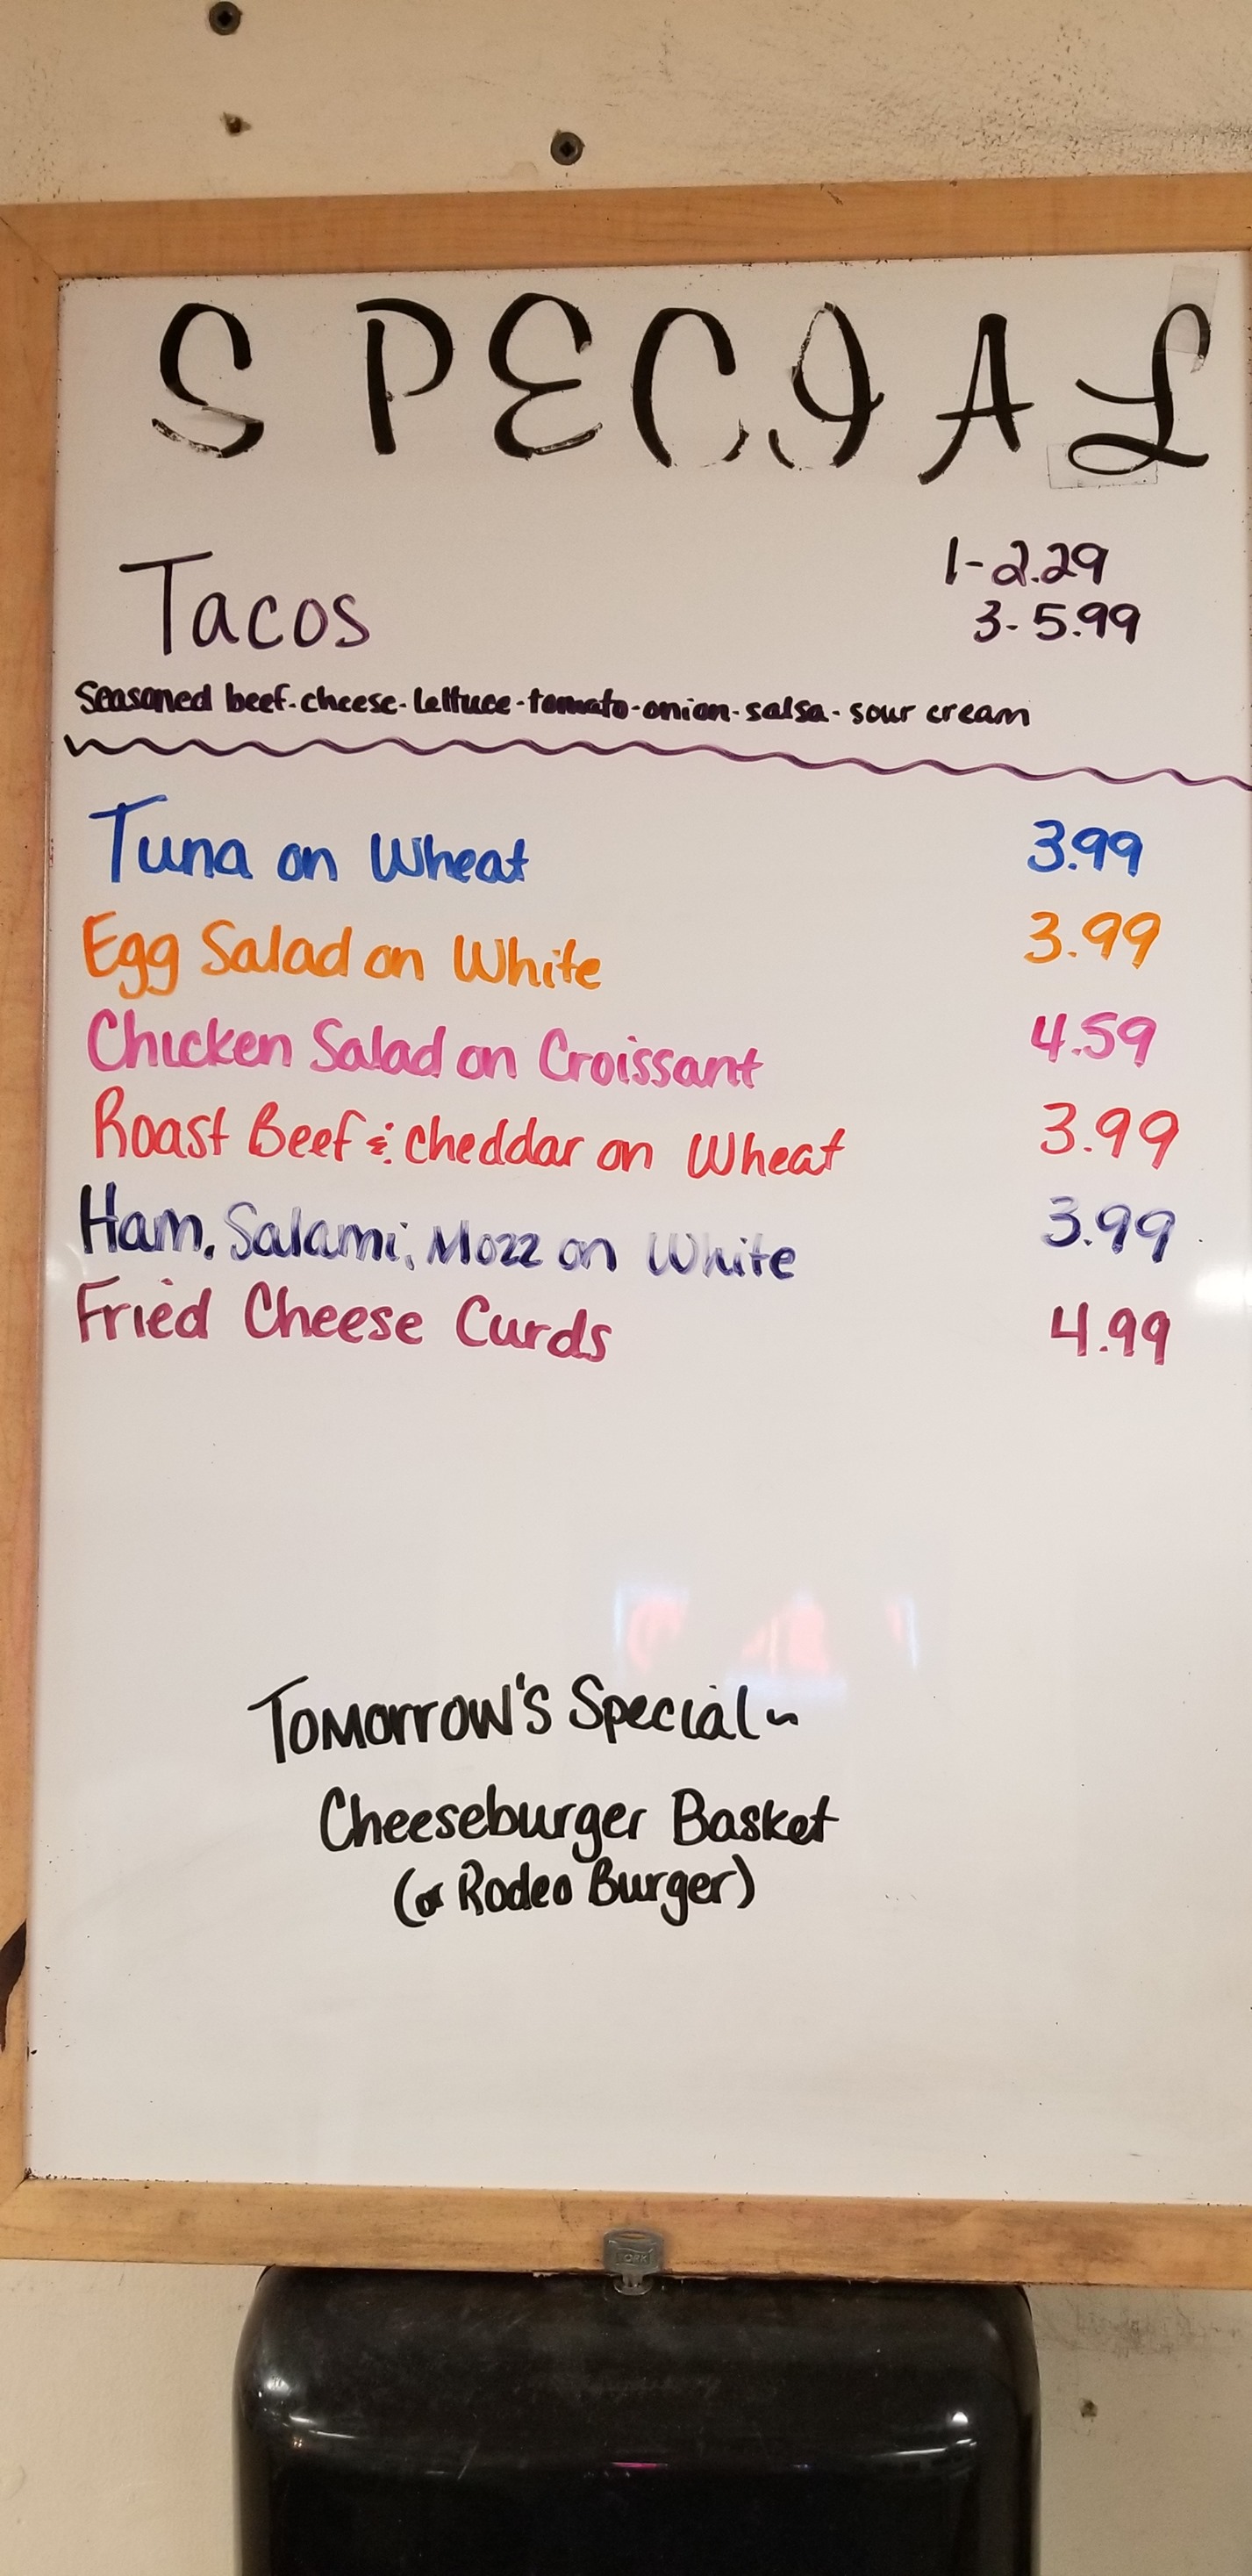 SPECIAL
Tacos 1-2.29
3-5.99
Seasoned beef-cheese-lettuce-tomato-onion-salsa-sour cream
Tuna on Wheat 3.99
Egg Salad on White 3.99
Chicken Salad on Croissant 4.59
Roast Beef & Cheddar on Wheat 3.99
Ham, Salami, Mozz on White 3.99
Fried Cheese Curds 4.99
Tomorrow's Special ~
Cheeseburger Basket
(or Rodeo Burger)
TORK